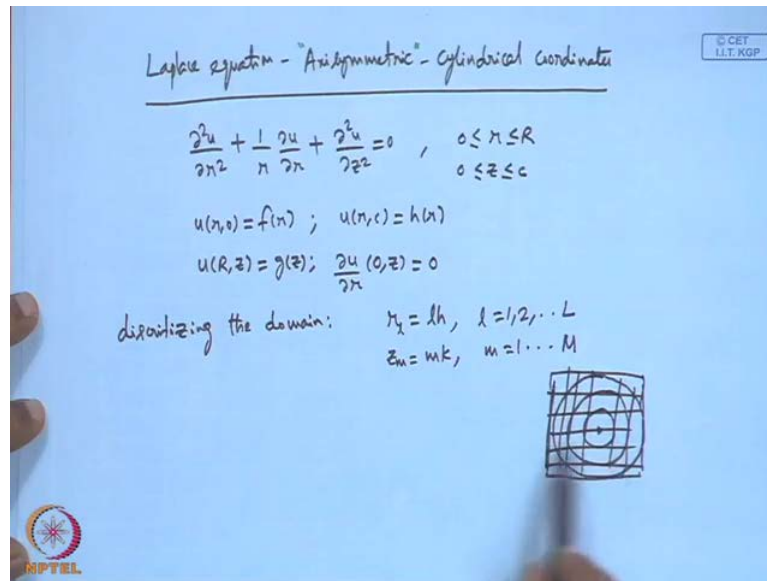 Laplace equation - "Axisymmetric" - Cylindrical coordinates
© CET
I.I.T. KGP
∂²u/∂r² + 1/r ∂u/∂r + ∂²u/∂z² = 0 , 0 ≤ r ≤ R
0 ≤ z ≤ c
u(r,0) = f(r) ; u(r,c) = h(r)
u(R,z) = g(z); ∂u/∂r (0,z) = 0
discritizing the domain: r_l = lh, l = 1,2,..L
z_m = mk, m = 1 ... M
NPTEL